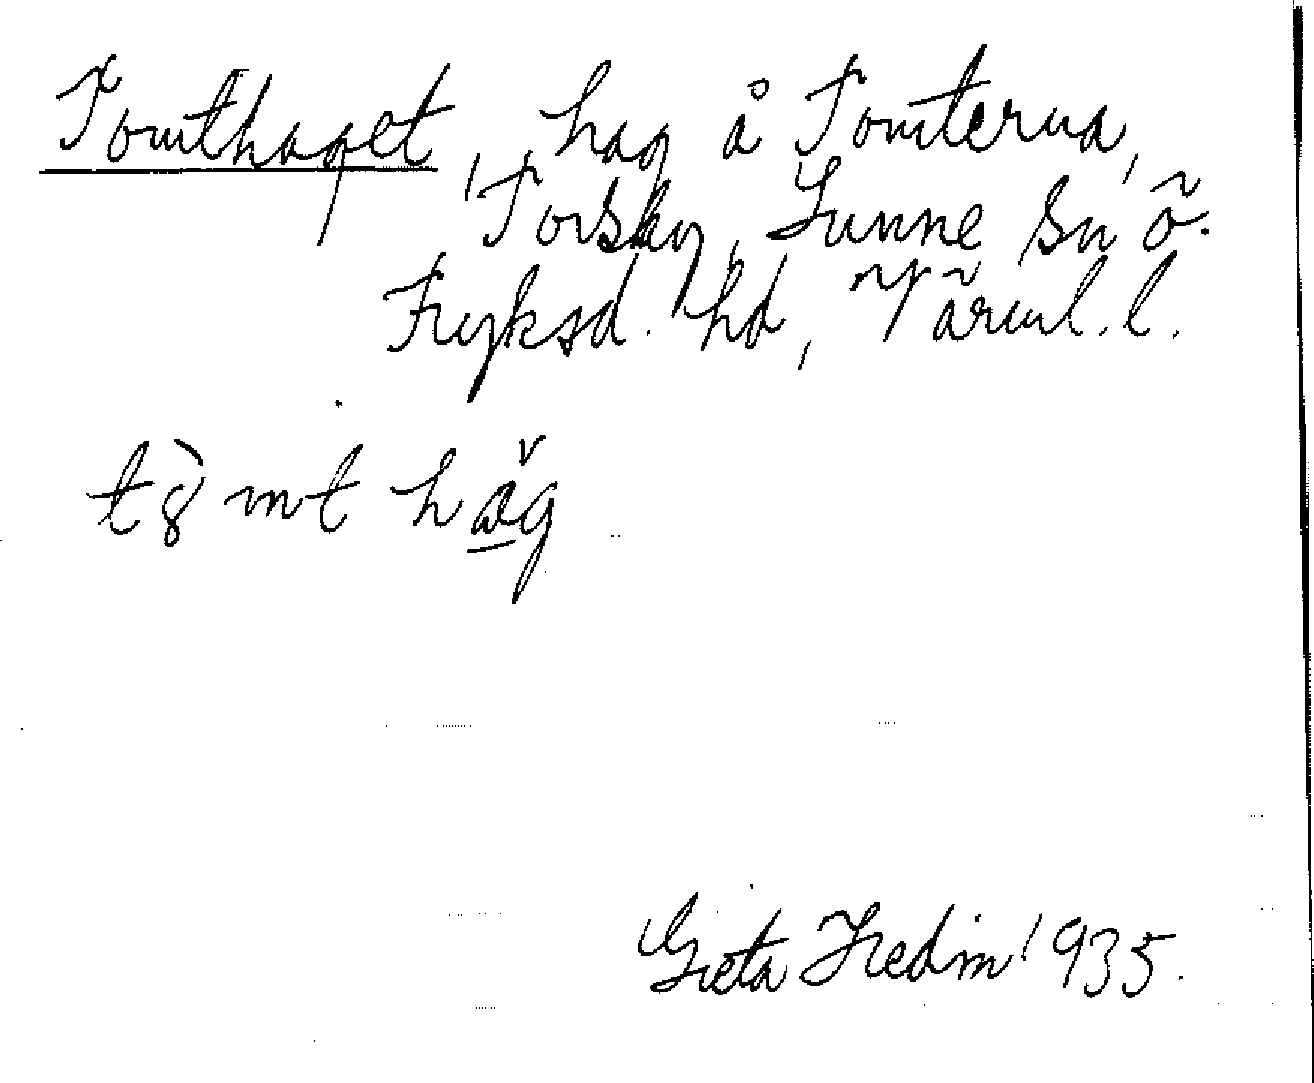 Tomthaget, hag å Tomterna,
Torsby, Sunne sn ö.
Fryksd. hd, Värml. l.
tȣ̀mt hǎg
Greta Hedin 1935.